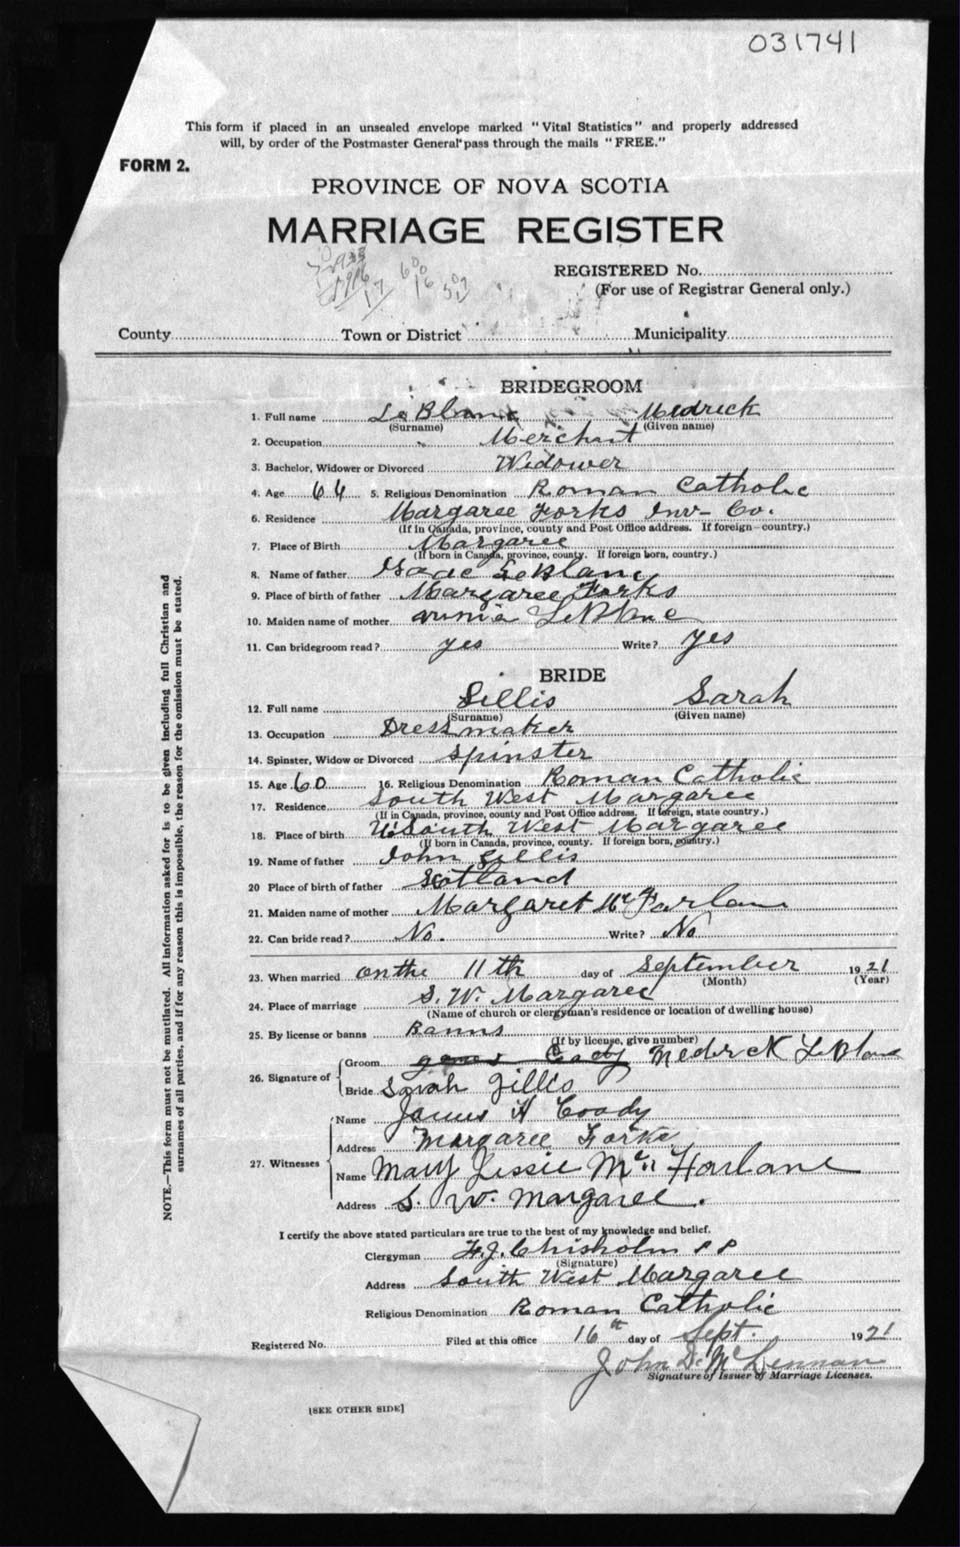 031741
This form if placed in an unsealed envelope marked "Vital Statistics" and properly addressed
will, by order of the Postmaster General pass through the mails "FREE."
FORM 2.
PROVINCE OF NOVA SCOTIA
MARRIAGE REGISTER
REGISTERED No.
(For use of Registrar General only.)
County Town or District Municipality
BRIDEGROOM
1. Full name LeBlanc Medrick
(Surname) (Given name)
2. Occupation Merchant
3. Bachelor, Widower or Divorced Widower
4. Age 64 5. Religious Denomination Roman Catholic
6. Residence Margaree Forks Inv- Co.
(If in Canada, province, county and Post Office address. If foreign—country.)
7. Place of Birth Margaree
(If born in Canada, province, county. If foreign born, country.)
8. Name of father Isaac LeBlanc
9. Place of birth of father Margaree Forks
10. Maiden name of mother LeBlanc
11. Can bridegroom read? yes Write? yes
BRIDE
12. Full name Gillis Sarah
(Surname) (Given name)
13. Occupation Dressmaker
14. Spinster, Widow or Divorced Spinster
15. Age 60 16. Religious Denomination Roman Catholic
17. Residence South West Margaree
(If in Canada, province, county and Post Office address. If foreign, state country.)
18. Place of birth South West Margaree
(If born in Canada, province, county. If foreign born, country.)
19. Name of father John Gillis
20 Place of birth of father Scotland
21. Maiden name of mother Margaret McFarlane
22. Can bride read? No. Write? No
23. When married on the 11th day of September 1921
(Month) (Year)
24. Place of marriage S. W. Margaree
(Name of church or clergyman's residence or location of dwelling house)
25. By license or banns Banns
(If by license, give number)
26. Signature of Groom Coady Mederick LeBlanc
Bride Sarah Gillis
27. Witnesses Name James H Coady
Address Margaree Forks
Name Mary Jessie McFarlane
Address S. W. Margaree.
I certify the above stated particulars are true to the best of my knowledge and belief.
Clergyman F. J. Chisholm P P
(Signature)
Address South West Margaree
Religious Denomination Roman Catholic
Registered No. Filed at this office 16th day of Sept. 1921
John D. McLennan
Signature of Issuer of Marriage Licenses.
[SEE OTHER SIDE]
NOTE.—This form must not be mutilated. All information asked for is to be given including full Christian and
surnames of all parties, and if for any reason this is impossible, the reason for the omission must be stated.